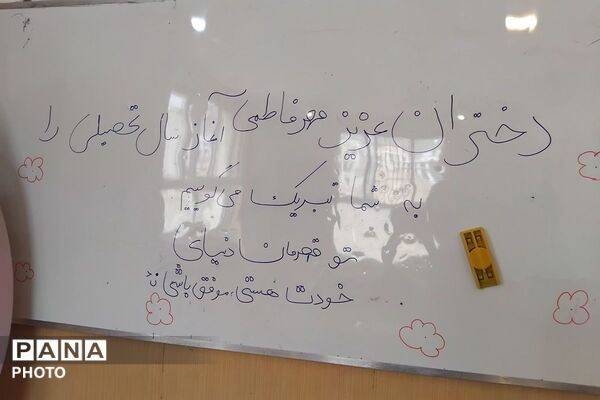 دختران عزیز مهرفاطمی آغاز سال تحصیلی را
به شما تبریک می‌گوییم.
تو قهرمان دنیای
خودت هستی، موفق باشی
PANA
PHOTO